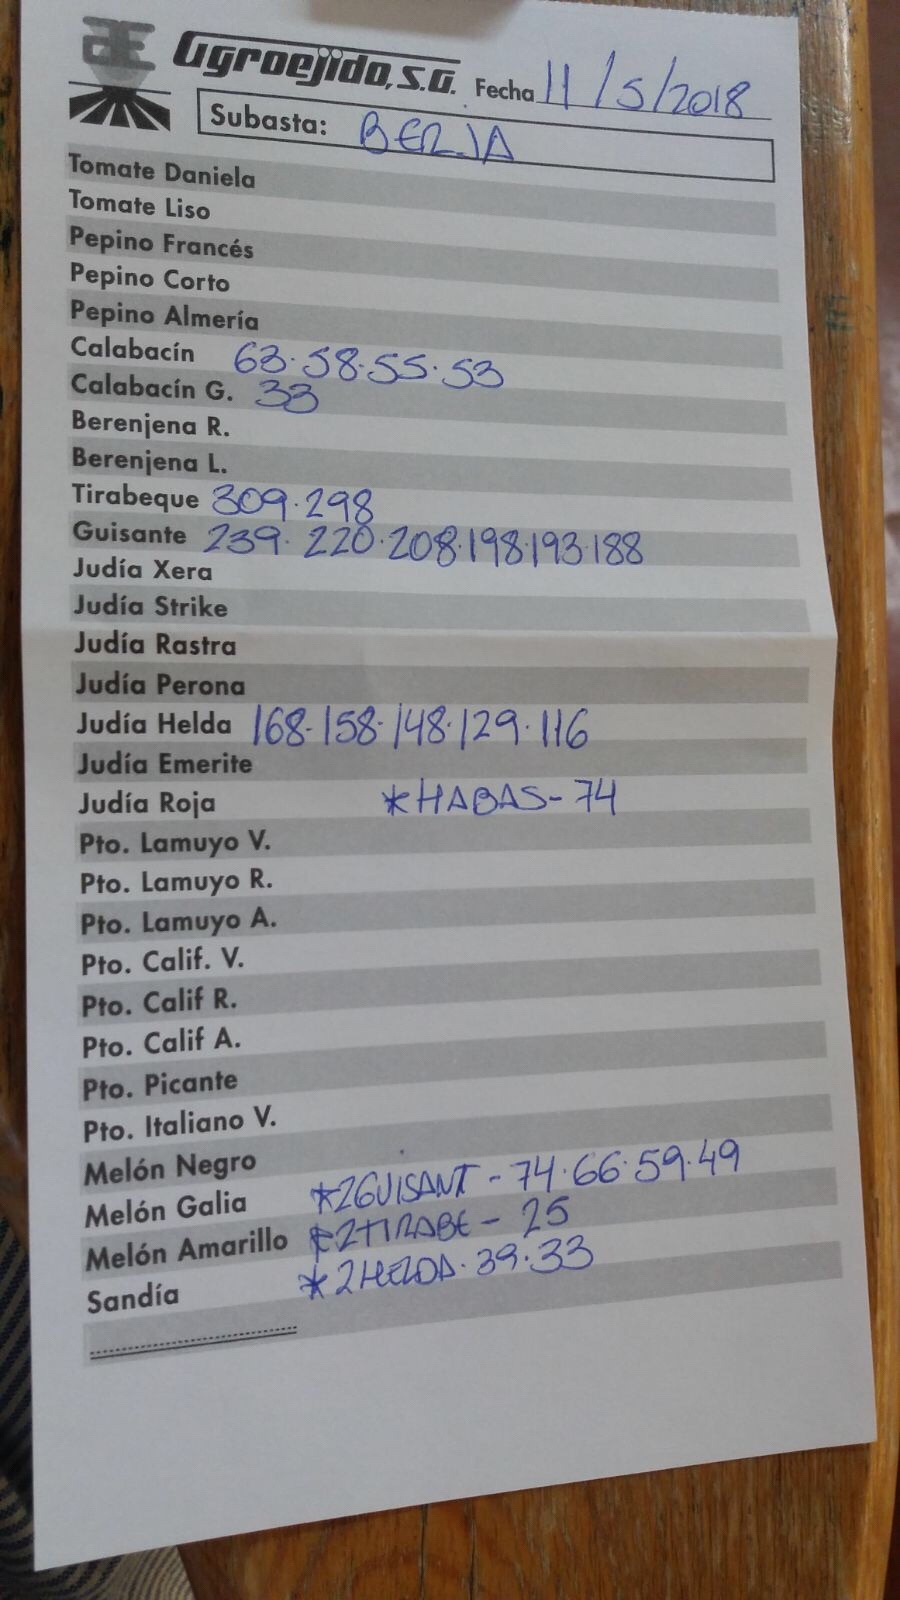 Agroejido, S.A. Fecha 11/5/2018
Subasta: BERJA
Tomate Daniela
Tomate Liso
Pepino Francés
Pepino Corto
Pepino Almería
Calabacín 63.58.55.53
Calabacín G. 33
Berenjena R.
Berenjena L.
Tirabeque 309.298
Guisante 239. 220.208.198.193.188
Judía Xera
Judía Strike
Judía Rastra
Judía Perona
Judía Helda 168.158.148.129.116
Judía Emerite
Judía Roja *HABAS-74
Pto. Lamuyo V.
Pto. Lamuyo R.
Pto. Lamuyo A.
Pto. Calif. V.
Pto. Calif R.
Pto. Calif A.
Pto. Picante
Pto. Italiano V.
Melón Negro
Melón Galia *2GUISANT - 74.66.59.49
Melón Amarillo *2TIRABE - 25
Sandía *2HELDA.39.33